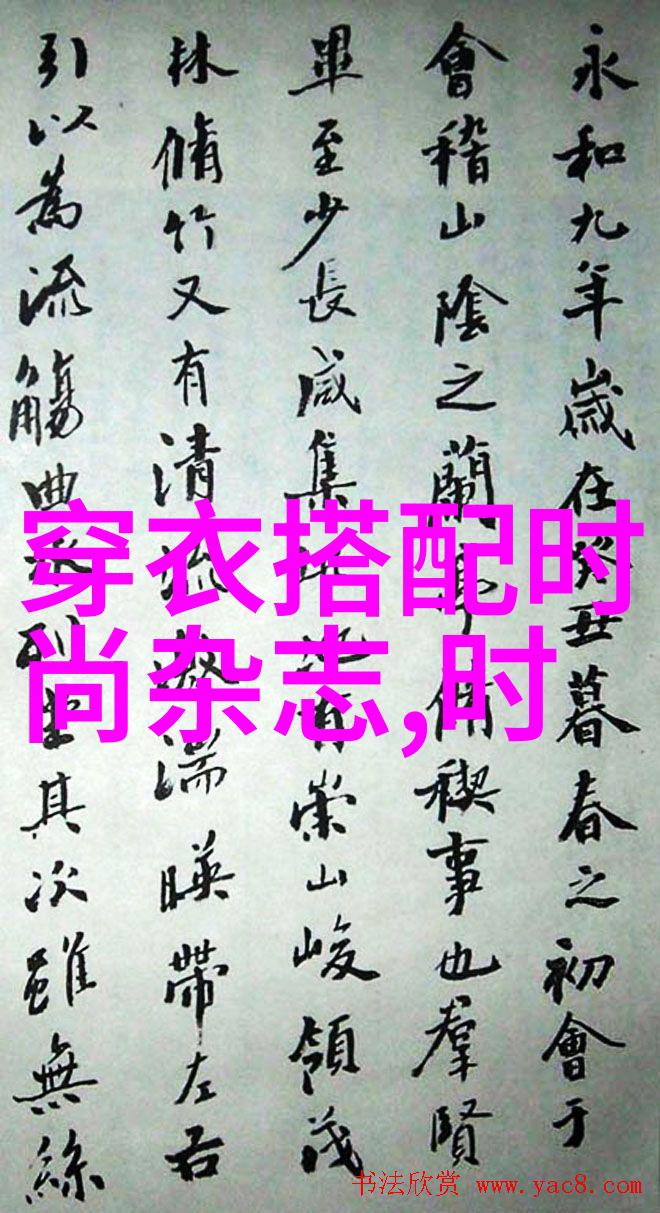 永和九年歲在癸丑暮春之初會于
會稽山陰之蘭亭脩稧事也羣賢
畢至少長咸集此地有崇山峻領茂
林脩竹又有清流激湍暎帶左右
引以為流觴曲水列坐其次雖無絲
穿衣搭配时
尚杂志,时
书法欣赏 www.yac8.com